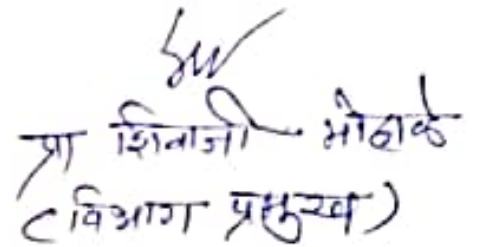 प्रा शिवाजी मोहाळे
(विभाग प्रमुख)